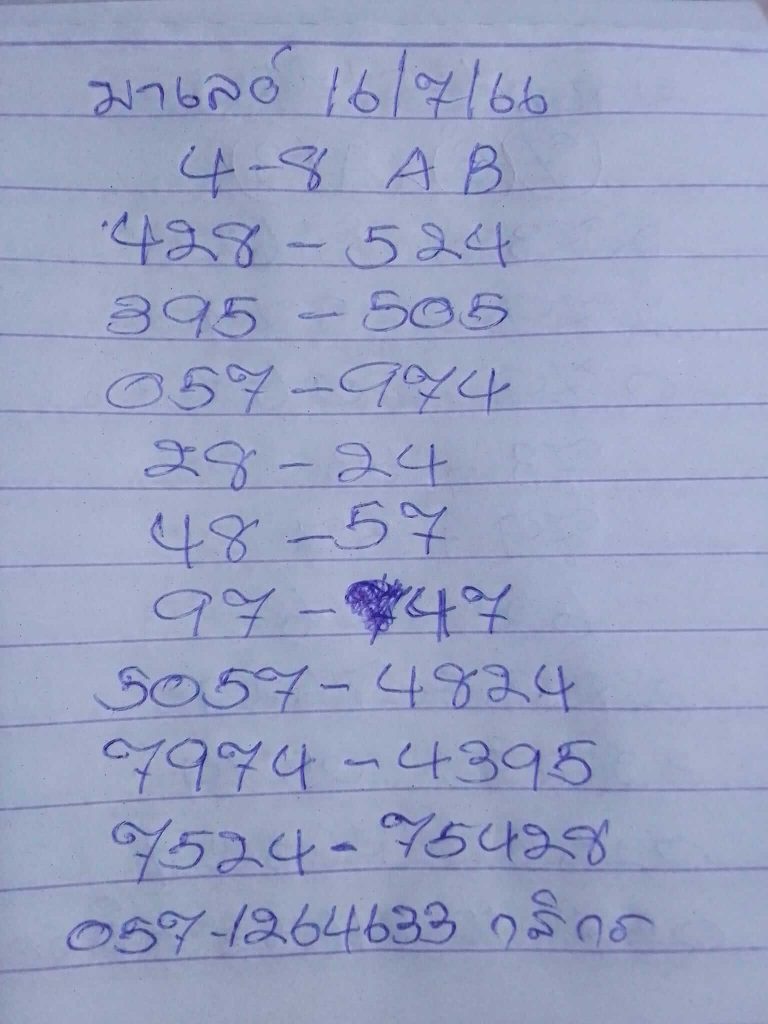 มาเลย์ 16/7/66
4-8 A B
428 - 524
395 - 505
057 - 974
28 - 24
48 - 57
97 - 47
5057 - 4824
7974 - 4395
7524 - 75428
057-1264633 กสิกร